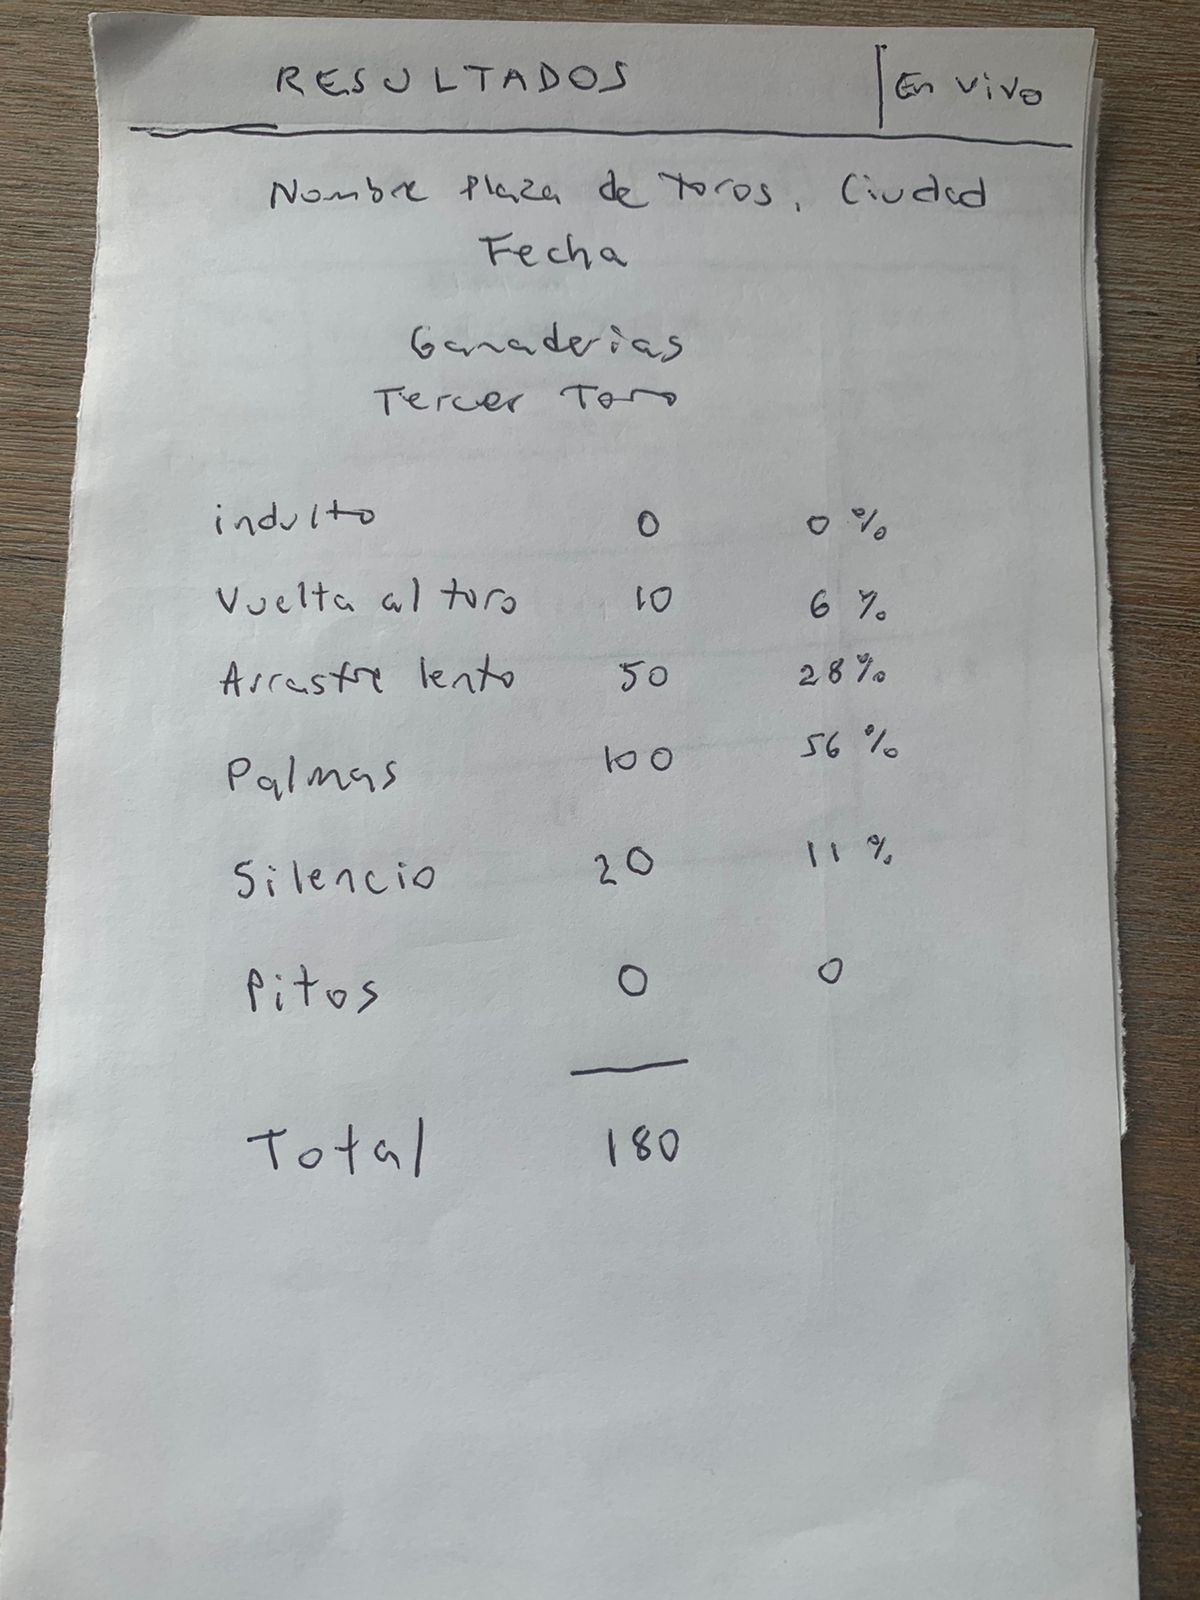 RESULTADOS | En vivo
Nombre Plaza de toros, Ciudad
Fecha
Ganaderias
Tercer Toro
indulto 0 0 %
Vuelta al toro 10 6 %
Arrastre lento 50 28%
Palmas 100 56 %
Silencio 20 11 %
Pitos 0 0
Total 180